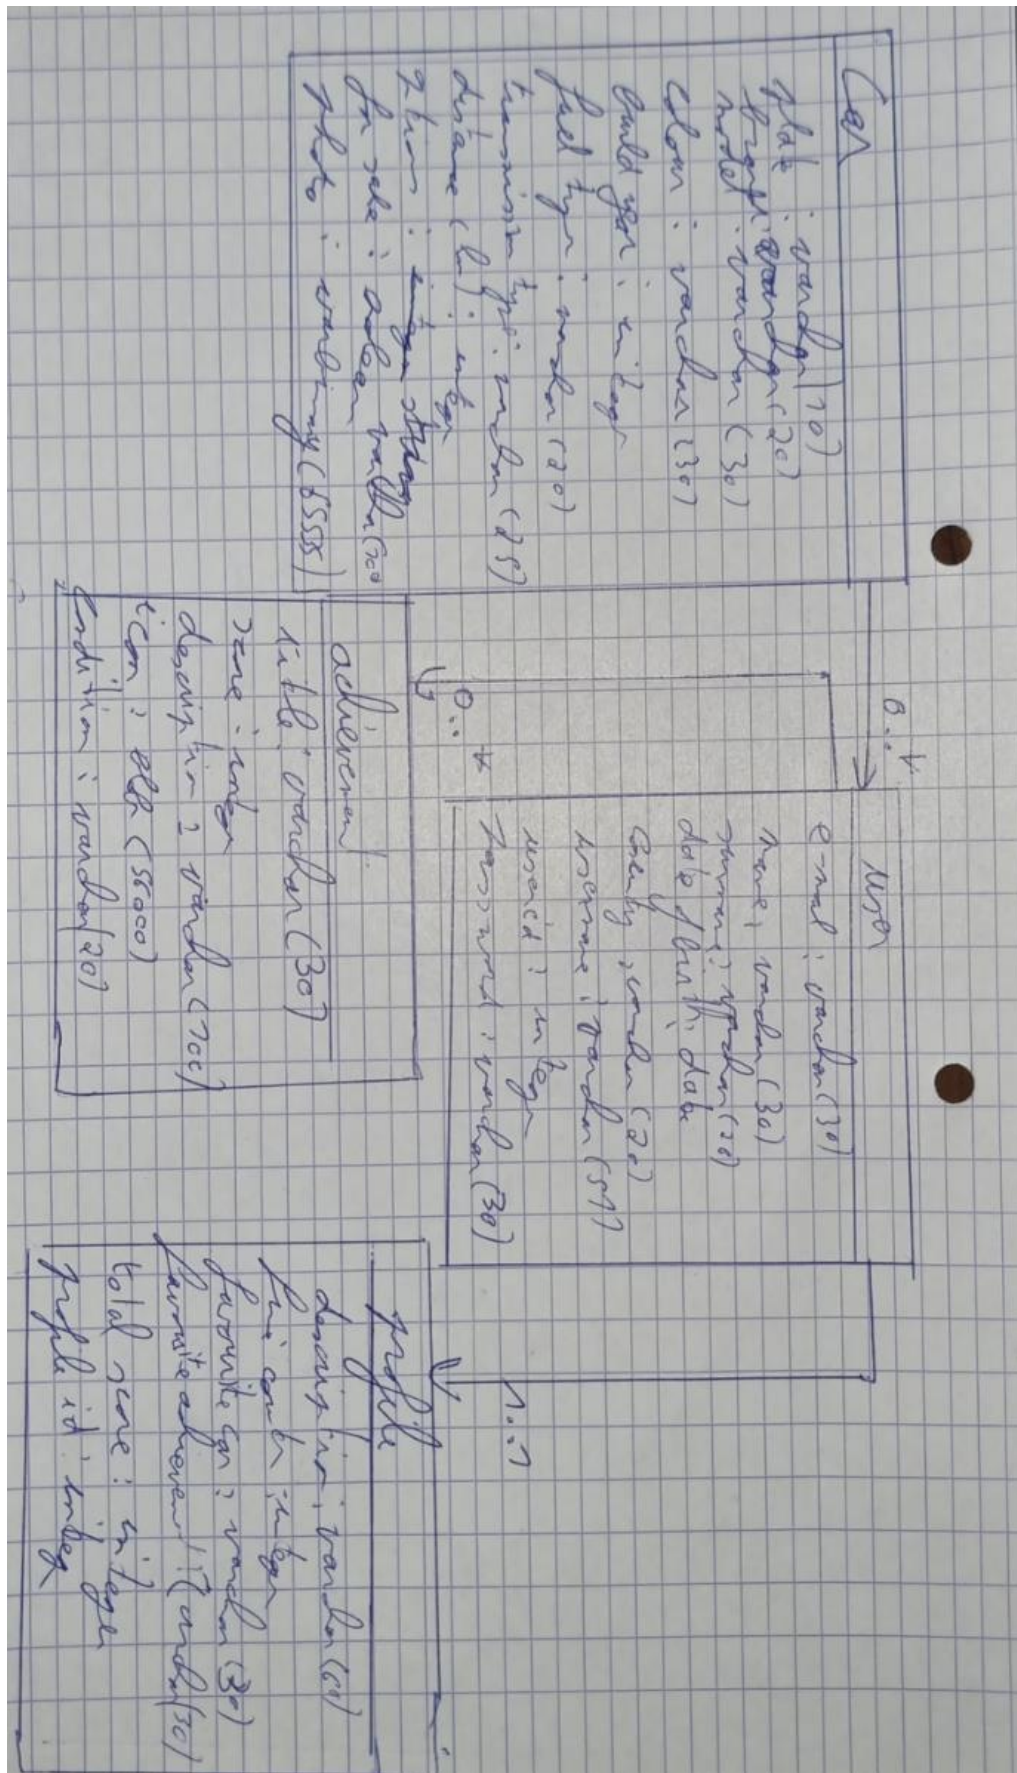 Car
plate : varchar(10)
brand : varchar(20)
model : varchar(30)
colour : varchar(30)
build year : integer
fuel type : varchar(20)
transmission type : varchar(25)
distance (km) : integer
for sale : boolean
photo : varbinary(65535)
0..*
User
e-mail : varchar(30)
name : varchar(30)
surname : varchar(20)
date of birth : date
county : varchar(20)
username : varchar(51)
userid : integer
password : varchar(30)
0..*
achievement
title : varchar(30)
score : integer
description : varchar(100)
icon : (55000)
condition : varchar(20)
1..1
profile
description : varchar(60)
integer
favourite car : varchar(30)
favourite achievement : varchar(30)
total score : integer
profile id : integer